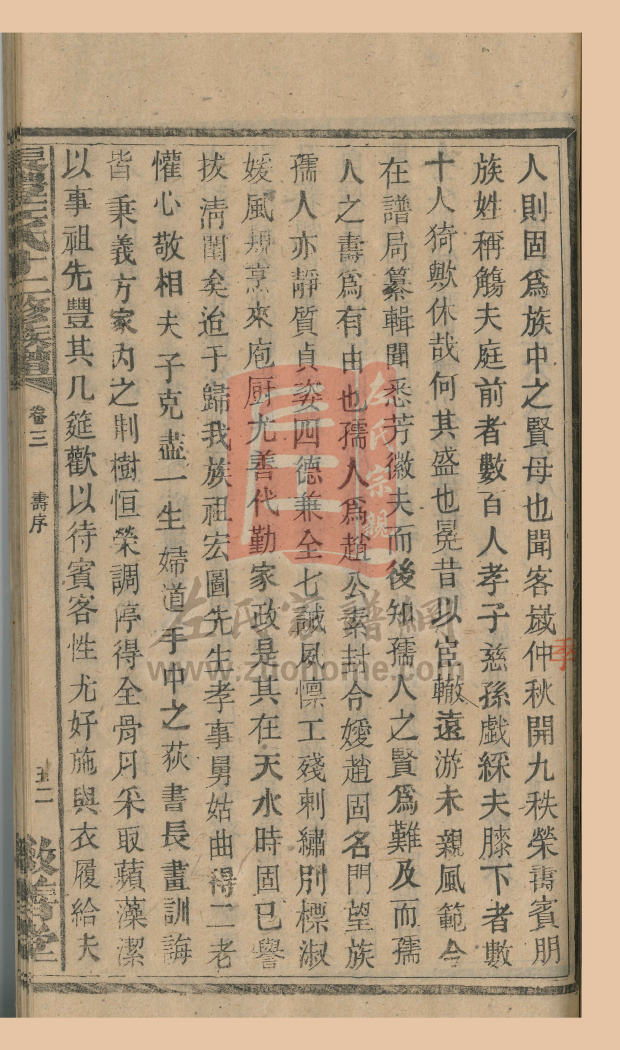 人則固爲族中之賢母也聞客嵗仲秋開九秩榮壽賓朋
族姓稱觴夫庭前者數百人孝子慈孫戯綵夫膝下者數
十人猗歟休哉何其盛也晃昔以宦轍遠游未親風範今
在譜局纂輯聞悉芳徽夫而後知孺人之賢爲難及而孺
人之壽爲有由也孺人爲趙公素封令嫒趙固名門望族
孺人亦靜質貞姿四德兼全七誡夙懍工殘刺繡別標淑
媛風規烹來庖厨尤善代勤家政是其在天水時固已譽
拔淸閨矣迨于歸我族祖宏圖先生孝事舅姑曲得二老
懽心敬相夫子克盡一生婦道手中之荻書長畫訓誨
皆秉義方家內之荆樹恒榮調停得全骨月采取蘋藻潔
以事祖先豐其几筵歡以待賓客性尤好施與衣履給夫
左氏十二修族譜
卷三
壽序
五二
敬諸堂
左氏宗親
左氏宗譜網
www.zuohome.com